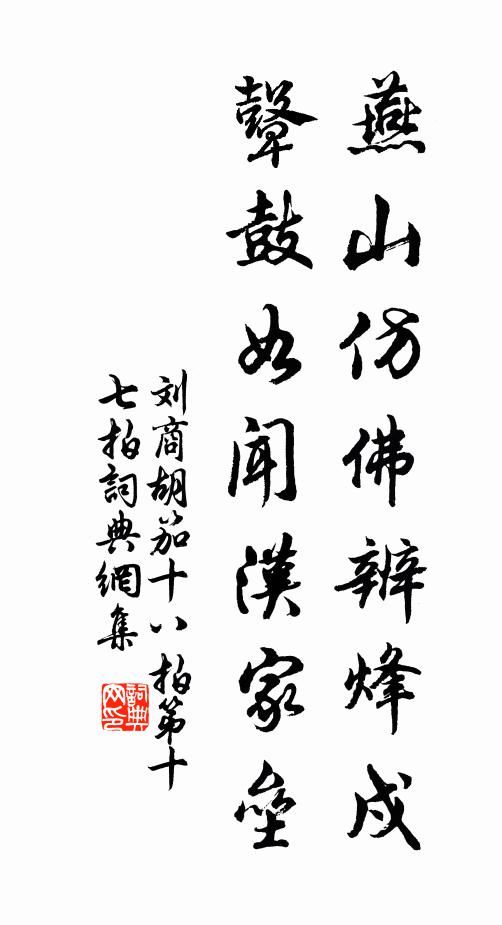 燕山仿佛辨烽戍
鼙鼓如闻漢家壘
刘商胡笳十八拍第十
七拍詞典網集
詞典网印